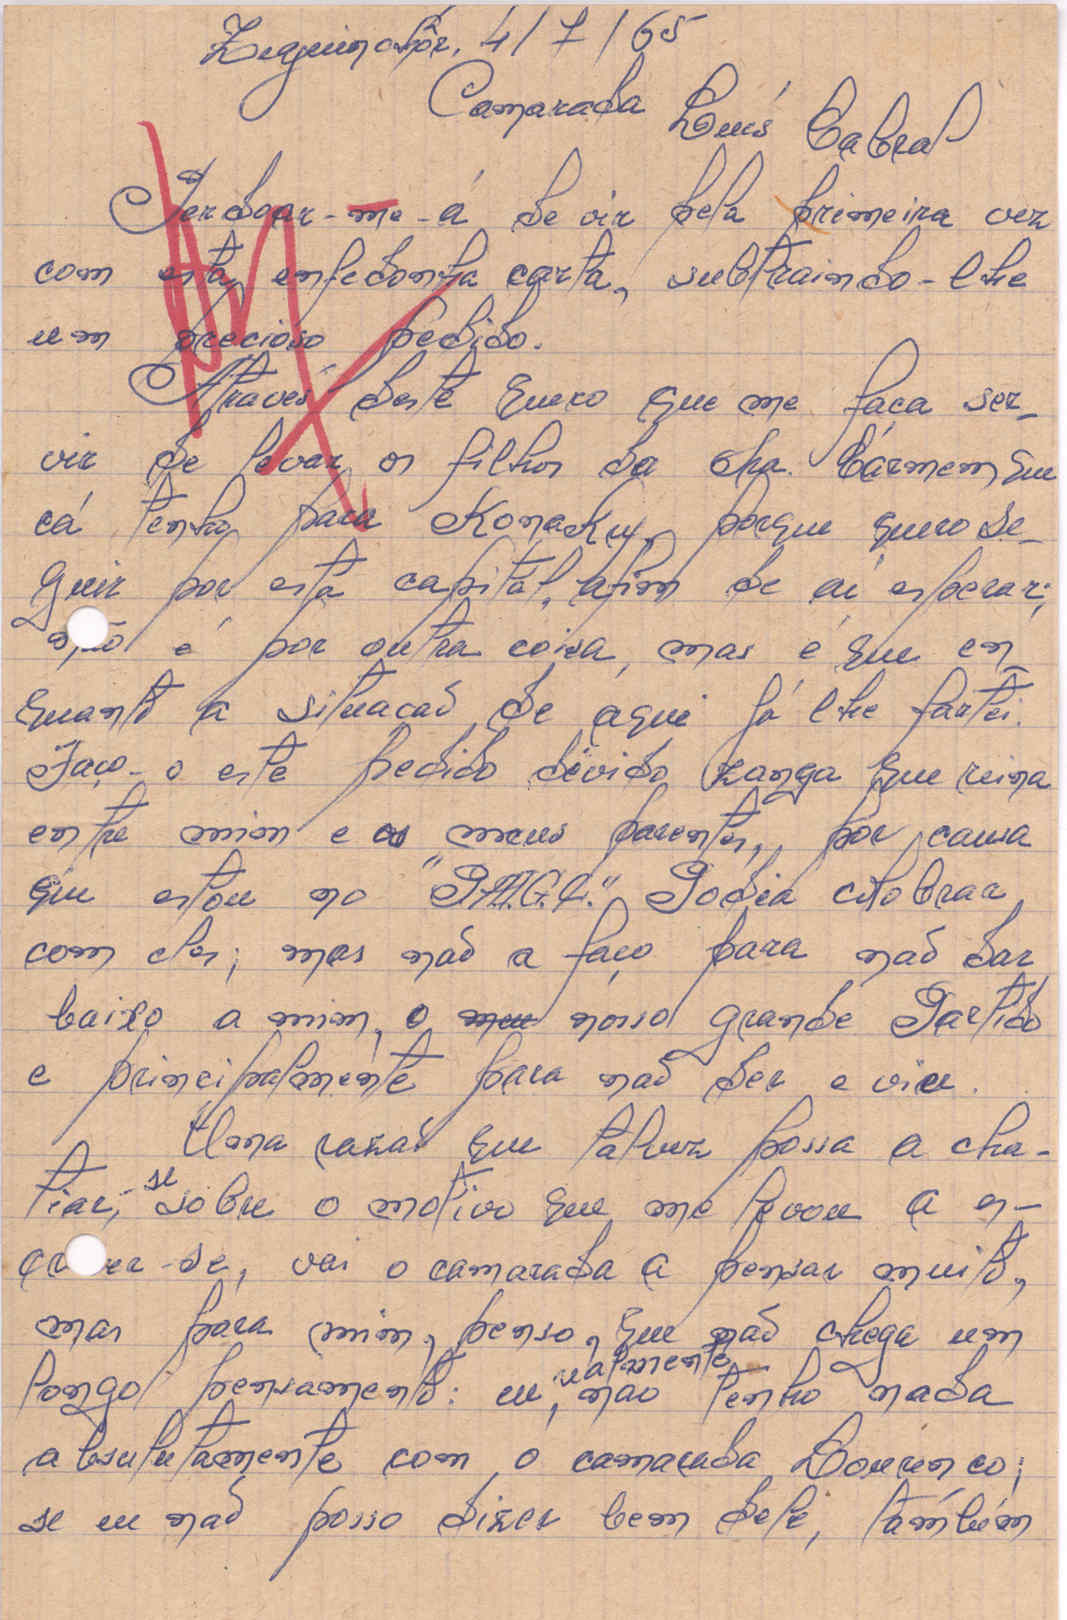 Zeguinchôr, 4/7/65
Camarada Luís Cabral
Perdoar-me-á de vir pela primeira vez
com esta enfedonha carta, subtraindo-lhe
um precioso pedido.
Através deste quero que me faca ser-
vir de levar os filhos da sha. Cármem que
cá tenho, para Konakry, porque quero se-
guir por esta capital, afim de aí esperar;
não é por outra coisa, mas é que en
quanto a situacaõ de aqui já lhe fartei.
Faço-o este pedido dévido zanga que reina
entre mim e os meus parentes, por causa
que estou no "P.A.I.G.C." Podia
com eles; mas naõ a faço para naõ dar
baixo a mim, o meu nosso grande Partido
e principalmente para naõ ser e
Uma razaõ que talvez possa a cha-
tiar, se sobre o motivo que me levou a es-
crever-se, vai o camarada a pensar muito,
mas para mim, penso, que naõ chega um
longo pensamento: eu, não tenho nada
absulutamente com o camarada Lourenco;
se eu naõ posso dizer bem dele, também